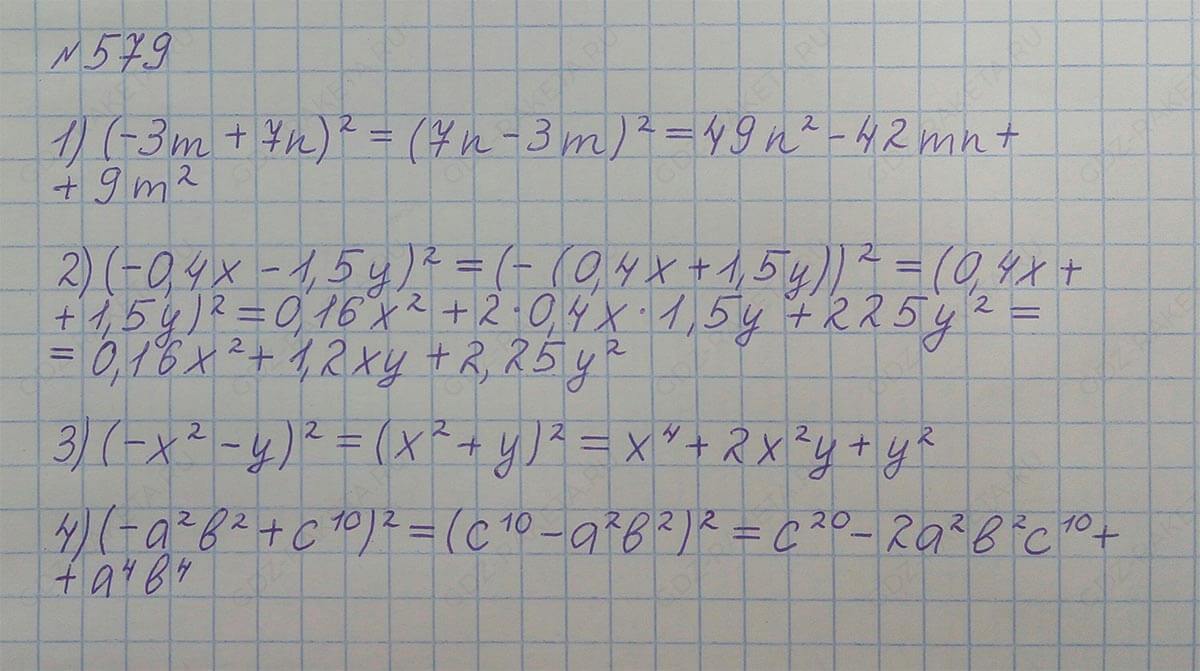 №579
1) (-3m + 7n)² = (7n - 3m)² = 49n² - 42mn +
+ 9m²
2) (-0,4x - 1,5y)² = (- (0,4x + 1,5y))² = (0,4x +
+ 1,5y)² = 0,16x² + 2·0,4x·1,5y + 225y² =
= 0,16x² + 1,2xy + 2,25y²
3) (-x² - y)² = (x² + y)² = x⁴ + 2x²y + y²
4) (-a²b² + c¹⁰)² = (c¹⁰ - a²b²)² = c²⁰ - 2a²b²c¹⁰ +
+ a⁴b⁴